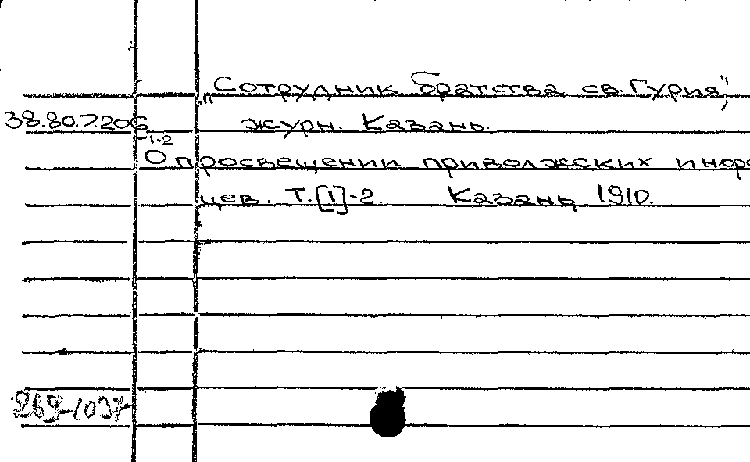 „Сотрудник братства св. Гурия",
38.80.7.206 журн. Казань.
1-2
О просвещении приволжских инор
цев. Т.[1]-2 Казань, 1910.
269-1037